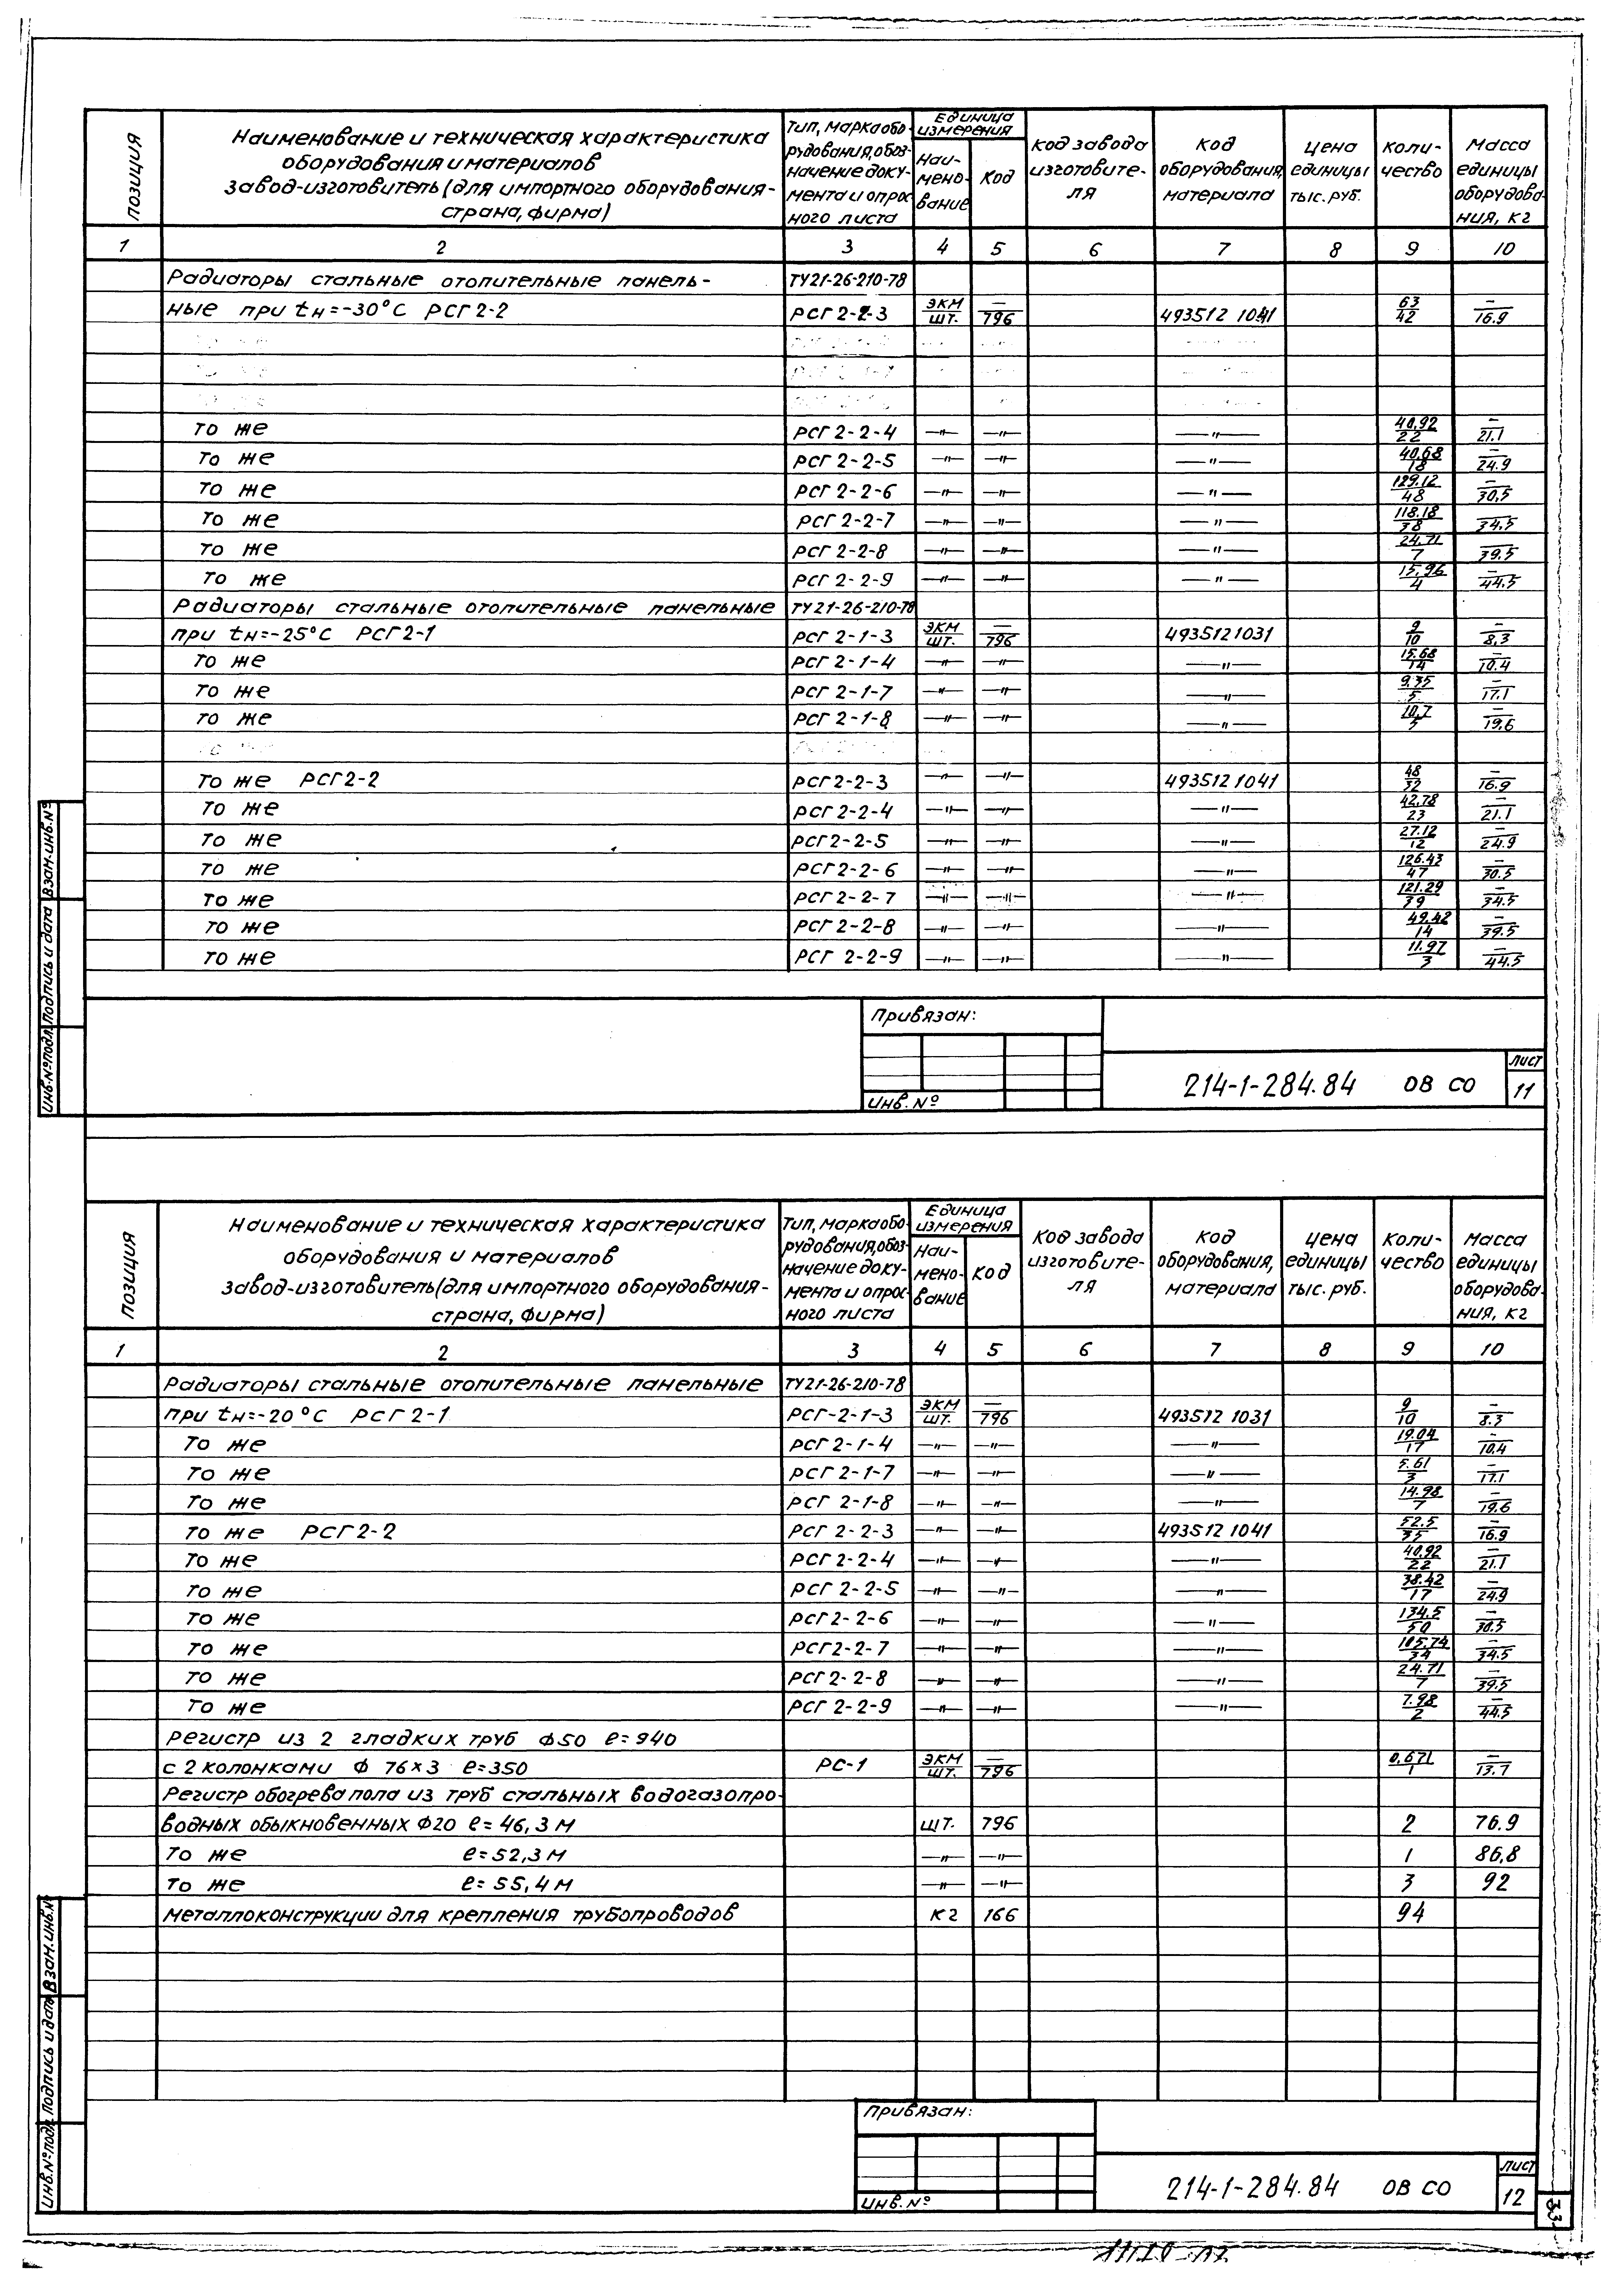 позиция
Наименование и техническая характеристика
оборудования и материалов
завод-изготовитель (для импортного оборудования-
страна, фирма)
Тип, марка обо-
рудования, обоз-
начение доку-
мента и опрос-
ного листа
Единица
измерения
Наи-
мено-
вание
Код
Код завода
изготовите-
ля
Код
оборудования,
материала
Цена
единицы
тыс. руб.
Коли-
чество
Масса
единицы
оборудова-
ния, кг
1 2 3 4 5 6 7 8 9 10
Радиаторы стальные отопительные панель- ТУ21-26-210-78
ные при tн=-30°С РСГ2-2 РСГ2-2-3 ЭКМ/шт. —/796 493512 1041 63/42 —/16.9
то же РСГ2-2-4 —"— —"— —"— 40,92/22 —/21.1
то же РСГ2-2-5 —"— —"— —"— 40,68/18 —/24.9
то же РСГ2-2-6 —"— —"— —"— 129.12/48 —/30,5
то же РСГ2-2-7 —"— —"— —"— 118.18/38 —/34,5
то же РСГ2-2-8 —"— —"— —"— 24.71/7 —/39.5
то же РСГ2-2-9 —"— —"— —"— 15,96/4 —/44.5
Радиаторы стальные отопительные панельные ТУ21-26-210-78
при tн=-25°С РСГ2-1 РСГ2-1-3 ЭКМ/шт. —/796 4935121031 9/10 —/8,3
то же РСГ2-1-4 —"— —"— —"— 15.68/14 —/10.4
то же РСГ2-1-7 —"— —"— —"— 9.35/5 —/17.1
то же РСГ2-1-8 —"— —"— —"— 10,7/5 —/19.6
то же РСГ2-2 РСГ2-2-3 —"— —"— 493512 1041 48/32 —/16.9
то же РСГ2-2-4 —"— —"— —"— 42.78/23 —/21.1
то же РСГ2-2-5 —"— —"— —"— 27.12/12 —/24.9
то же РСГ2-2-6 —"— —"— —"— 126.43/47 —/30.5
то же РСГ2-2-7 —"— —"— —"— 121.29/39 —/34.5
то же РСГ2-2-8 —"— —"— —"— 49.42/14 —/39.5
то же РСГ2-2-9 —"— —"— —"— 11.97/3 —/44.5
Инв.№подл. Подпись и дата Взам.инв.№
Привязан:
Инв.№
214-1-284.84 ОВ СО
лист
11
позиция
Наименование и техническая характеристика
оборудования и материалов
завод-изготовитель (для импортного оборудования-
страна, фирма)
Тип, марка обо-
рудования, обоз-
начение доку-
мента и опрос-
ного листа
Единица
измерения
Наи-
мено-
вание
Код
Код завода
изготовите-
ля
Код
оборудования,
материала
Цена
единицы
тыс. руб.
Коли-
чество
Масса
единицы
оборудова-
ния, кг
1 2 3 4 5 6 7 8 9 10
Радиаторы стальные отопительные панельные ТУ21-26-210-78
при tн=-20°С РСГ2-1 РСГ-2-1-3 ЭКМ/шт. —/796 493512 1031 9/10 —/8.3
то же РСГ2-1-4 —"— —"— —"— 19.04/17 —/10.4
то же РСГ2-1-7 —"— —"— —"— 5.61/3 —/17.1
то же РСГ2-1-8 —"— —"— —"— 14.98/7 —/19.6
то же РСГ2-2 РСГ2-2-3 —"— —"— 493512 1041 52.5/35 —/16.9
то же РСГ2-2-4 —"— —"— —"— 40,92/22 —/21.1
то же РСГ2-2-5 —"— —"— —"— 38.42/17 —/24.9
то же РСГ2-2-6 —"— —"— —"— 134.5/50 —/30.5
то же РСГ2-2-7 —"— —"— —"— 105,74/34 —/34.5
то же РСГ2-2-8 —"— —"— —"— 24.71/7 —/39.5
то же РСГ2-2-9 —"— —"— —"— 7.98/2 —/44.5
Регистр из 2 гладких труб ф50 ℓ=940
с 2 колонками ф 76×3 ℓ=350 РС-1 ЭКМ/шт. —/796 0,671/1 —/13.7
Регистр обогрева пола из труб стальных водогазопро-
водных обыкновенных ф20 ℓ=46,3 м шт. 796 2 76.9
То же ℓ=52,3 м —"— —"— 1 86,8
То же ℓ=55,4 м —"— —"— 3 92
Металлоконструкции для крепления трубопроводов кг 166 94
Инв.№подл. Подпись и дата Взам.инв.№
Привязан:
Инв.№
214-1-284.84 ОВ СО
лист
12
33